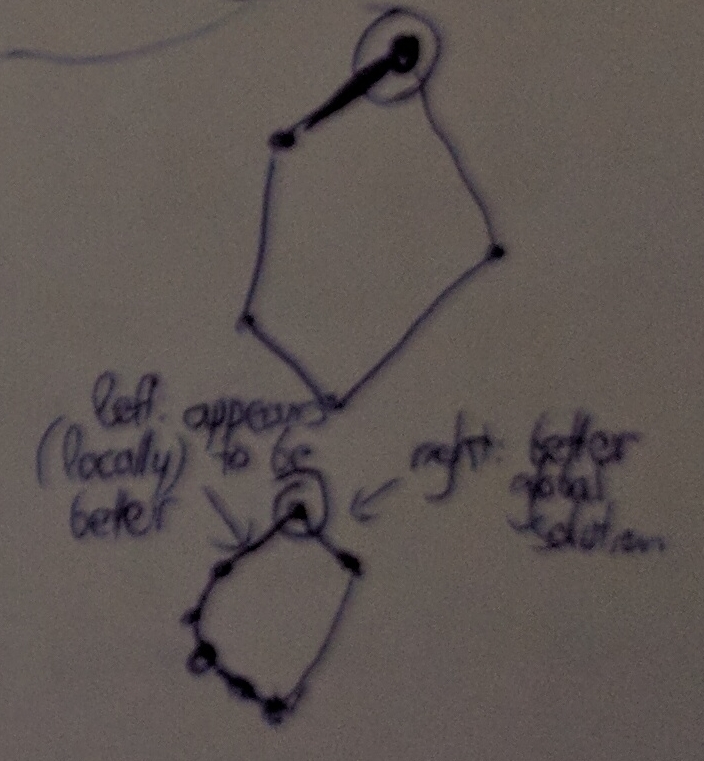 left: appears
(locally) to be
better
right: better
global
solution